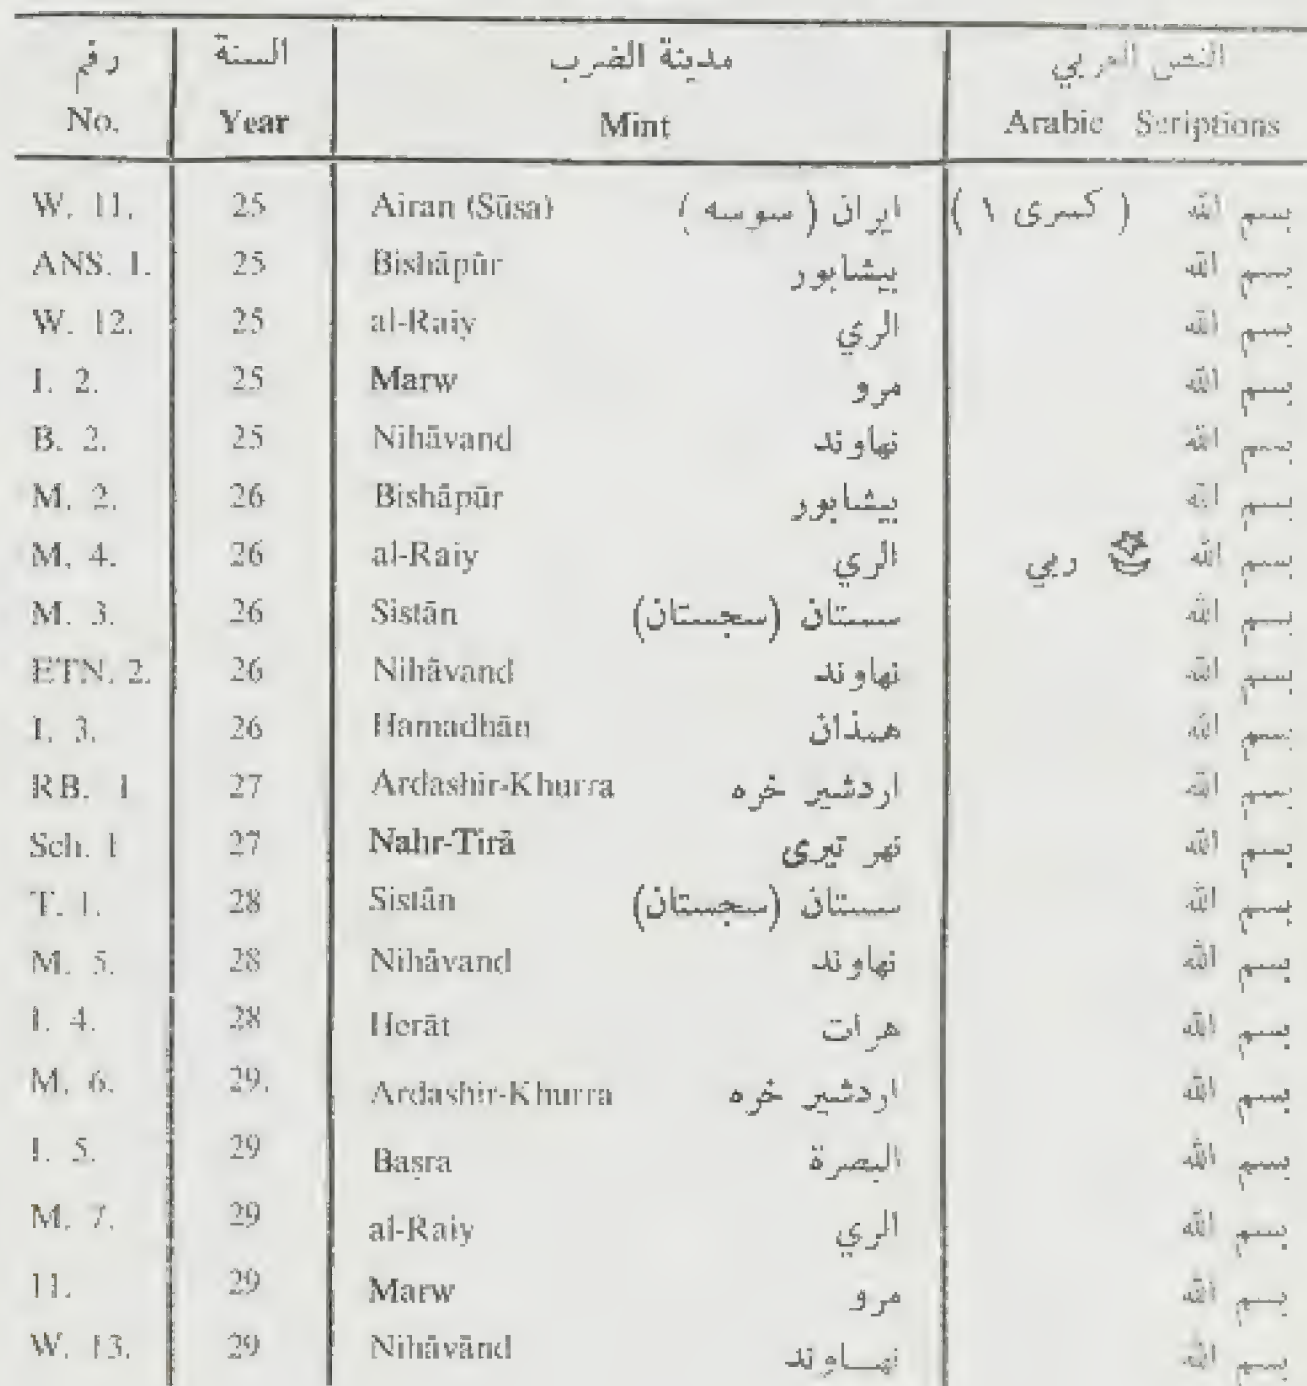 رقم السنة مدينة الضرب النص العربي
No. Year Mint Arabic Scriptions
W. 11. 25 Airan (Sūsa) ايران ( سوسه ) بسم الله ( كسرى ١ )
ANS. 1. 25 Bishāpūr بيشابور بسم الله
W. 12. 25 al-Raiy الري بسم الله
I. 2. 25 Marw مرو بسم الله
B. 2. 25 Nihāvand نهاوند بسم الله
M. 2. 26 Bishāpūr بيشابور بسم الله
M. 4. 26 al-Raiy الري بسم الله ربي
M. 3. 26 Sistān سستان (سجستان) بسم الله
ETN. 2. 26 Nihāvand نهاوند بسم الله
I. 3. 26 Hamadhān همذان بسم الله
RB. 1 27 Ardashir-Khurra اردشير خره بسم الله
Sch. 1 27 Nahr-Tirā نهر تيرى بسم الله
T. 1. 28 Sistān سستان (سجستان) بسم الله
M. 5. 28 Nihāvand نهاوند بسم الله
I. 4. 28 Herāt هرات بسم الله
M. 6. 29. Ardashir-Khurra اردشير خره بسم الله
I. 5. 29 Baṣra البصرة بسم الله
M. 7. 29 al-Raiy الري بسم الله
11. 29 Marw مرو بسم الله
W. 13. 29 Nihāvānd نهــاوند بسم الله